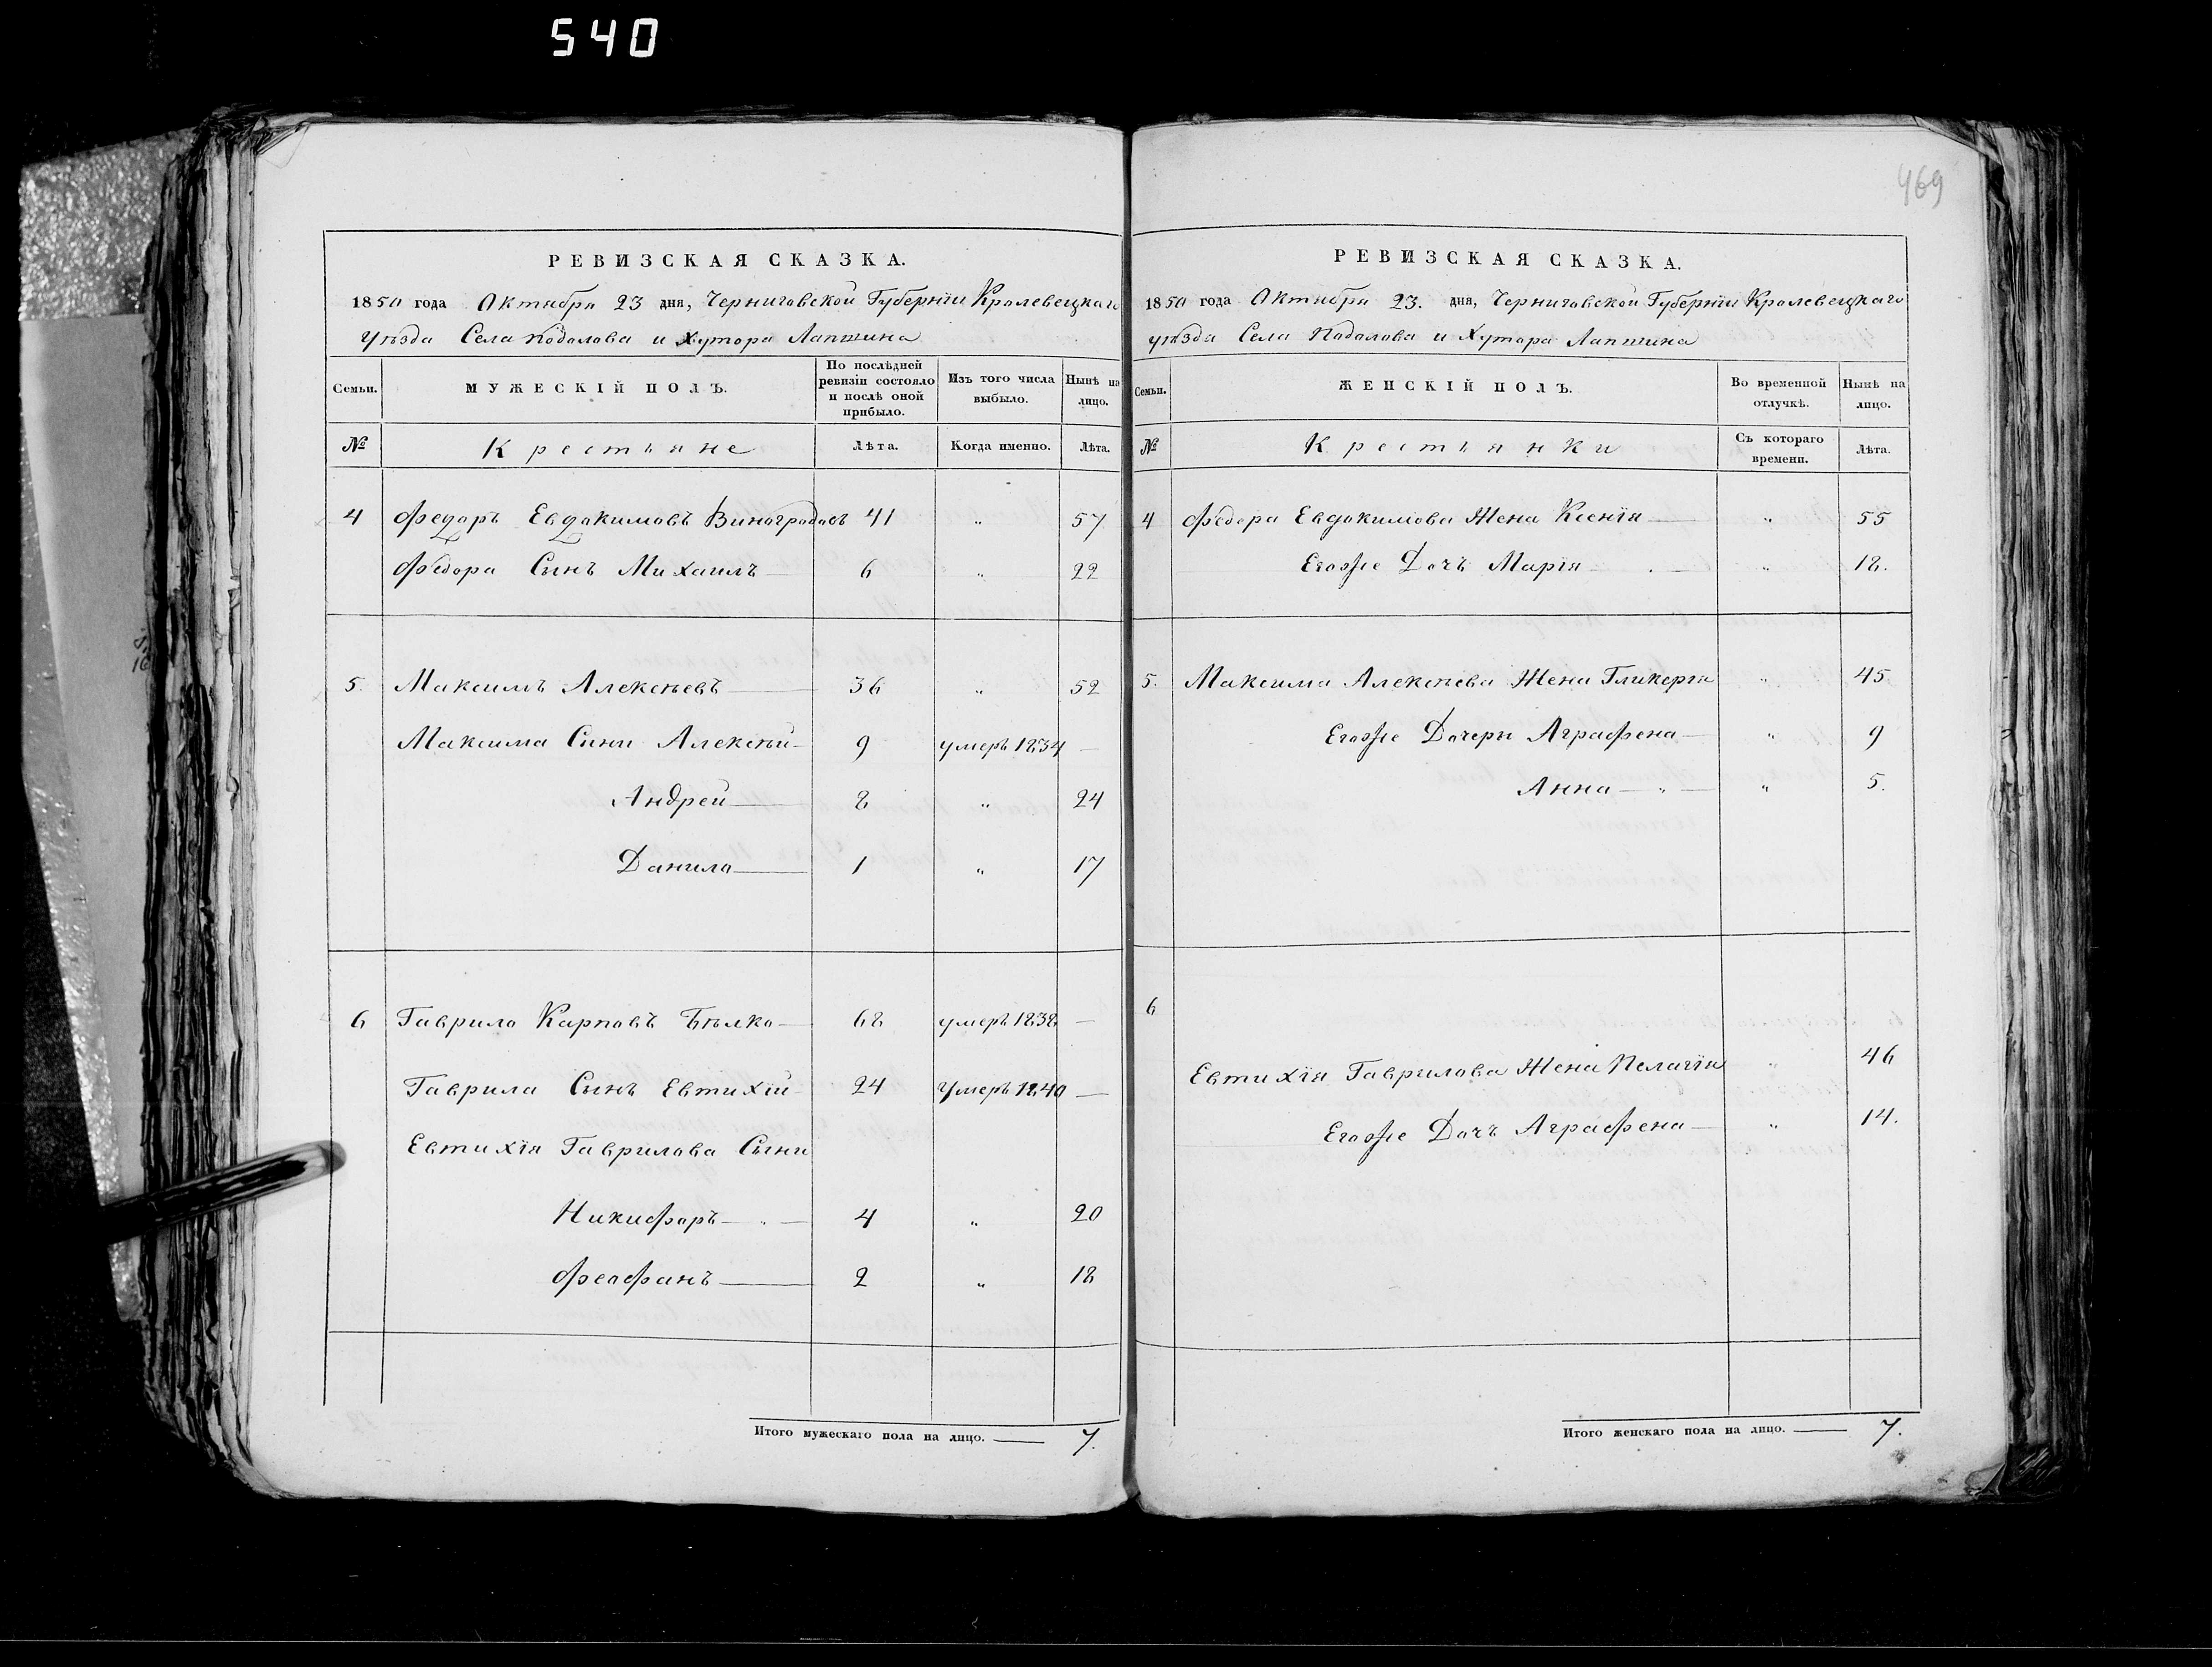 540
469
РЕВИЗСКАЯ СКАЗКА.
1850 года Октября 23 дня, Черниговской Губернїи Кролевецкаго
уѣзда Села Подолова и Хутора Лапшина
Семьи.
МУЖЕСКІЙ ПОЛЪ.
По послѣдней ревизіи состояло и послѣ оной прибыло.
Изъ того числа выбыло.
Нынѣ на лицо.
№ Крестьяне Лѣта. Когда именно. Лѣта.
4 Федоръ Евдокимовъ Виноградовъ 41 " 57
Федора Сынъ Михаилъ 6 " 22
5. Максимъ Алексѣевъ 36 " 52
Максима Сыни Алексѣй 9 умеръ 1834 —
Андрей 8 " 24
Данило 1 " 17
6 Гаврило Карповъ Бѣлко 68 умеръ 1838 —
Гаврила Сынъ Евтихїй 24 Умеръ 1840 —
Евтихїя Гаврилова Сыни
Никифоръ 4 " 20
Феофанъ 2 " 18
Итого мужескаго пола на лицо. — 7.
РЕВИЗСКАЯ СКАЗКА.
1850 года Октября 23. дня, Черниговской Губернїи Кролевецкаго
уѣзда Села Подолова и Хутора Лапшина
Семьи.
ЖЕНСКІЙ ПОЛЪ.
Во временной отлучкѣ.
Нынѣ на лицо.
№ Крестьянки Съ котораго времени. Лѣта.
4 Федора Евдокимова Жена Ксенїя " 55
Егоже Дочь Марїя " 18.
5. Максима Алексѣева Жена Гликерїя " 45
Егоже Дочери Аграфена " 9
Анна " 5.
6
Евтихїя Гаврилова Жена Пелагїя " 46
Егоже Дочь Аграфена " 14.
Итого женскаго пола на лицо. — 7.